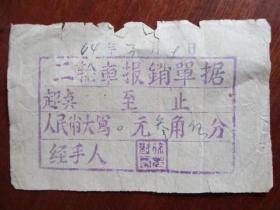 64年3月1日
二輪車报銷單据
起点 至 止
人民币大写 0元叁角伍分
经手人